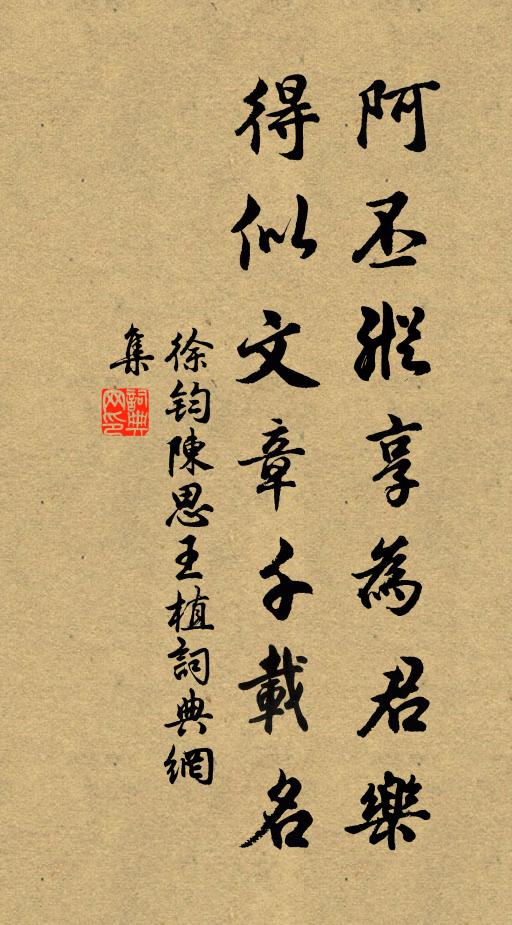 阿丕縱享為君樂
得似文章千載名
徐鈞陳思王植詞典網
集
詞典網印